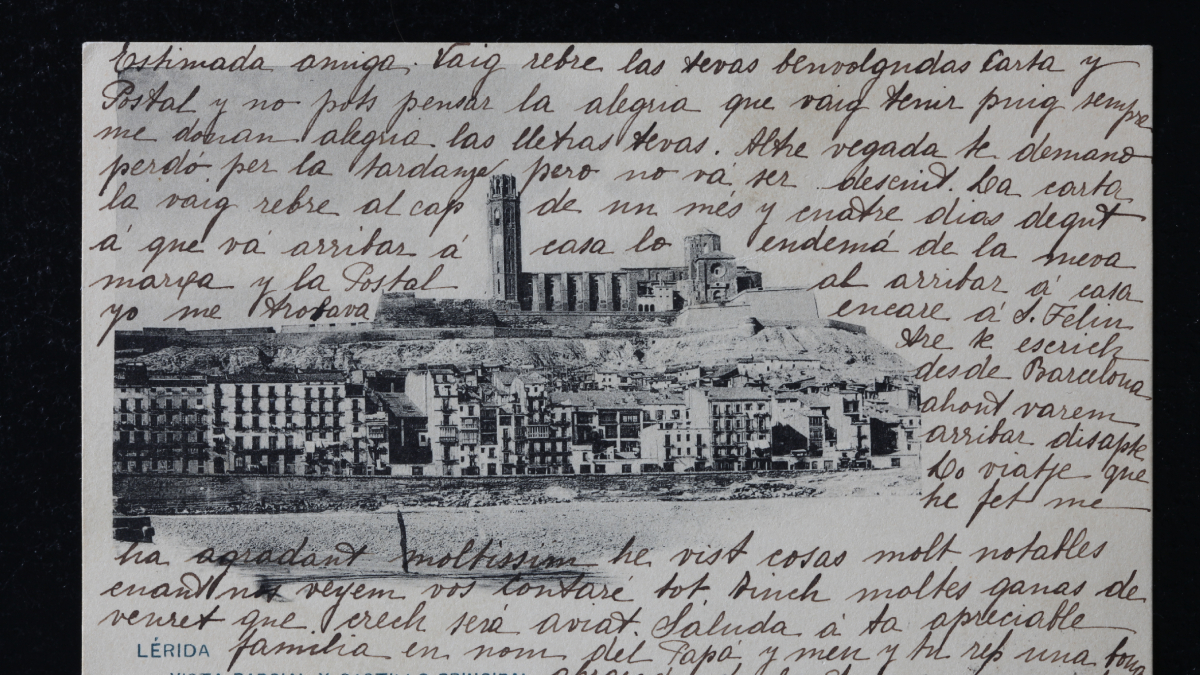 Estimada amiga. Vaig rebre las tevas benvolgudas Carta y
Postal y no pots pensar la alegria que vaig tenir puig sempre
me donan alegria las lletras tevas. Altre vegada te demano
perdó per la tardanse pero no vá ser descuit. La carta
la vaig rebre al cap de un més y cuatre dias degut
á que vá arribar á casa lo endemá de la meva
marxa y la Postal al arribar á casa
yo me trobava encare á S. Feliu
Are te escrich
desde Barcelona
ahont varem
arribar disapte
Lo viatje que
he fet me
ha agradant moltissim he vist cosas molt notables
cuant nos veyem vos contaré tot Tinch moltes ganas de
veuret que crech será aviat. Saluda á ta apreciable
familia en nom del Papá y meu y tu rep una bona
LÉRIDA
VISTA PARCIAL Y CASTILLO PRINCIPAL